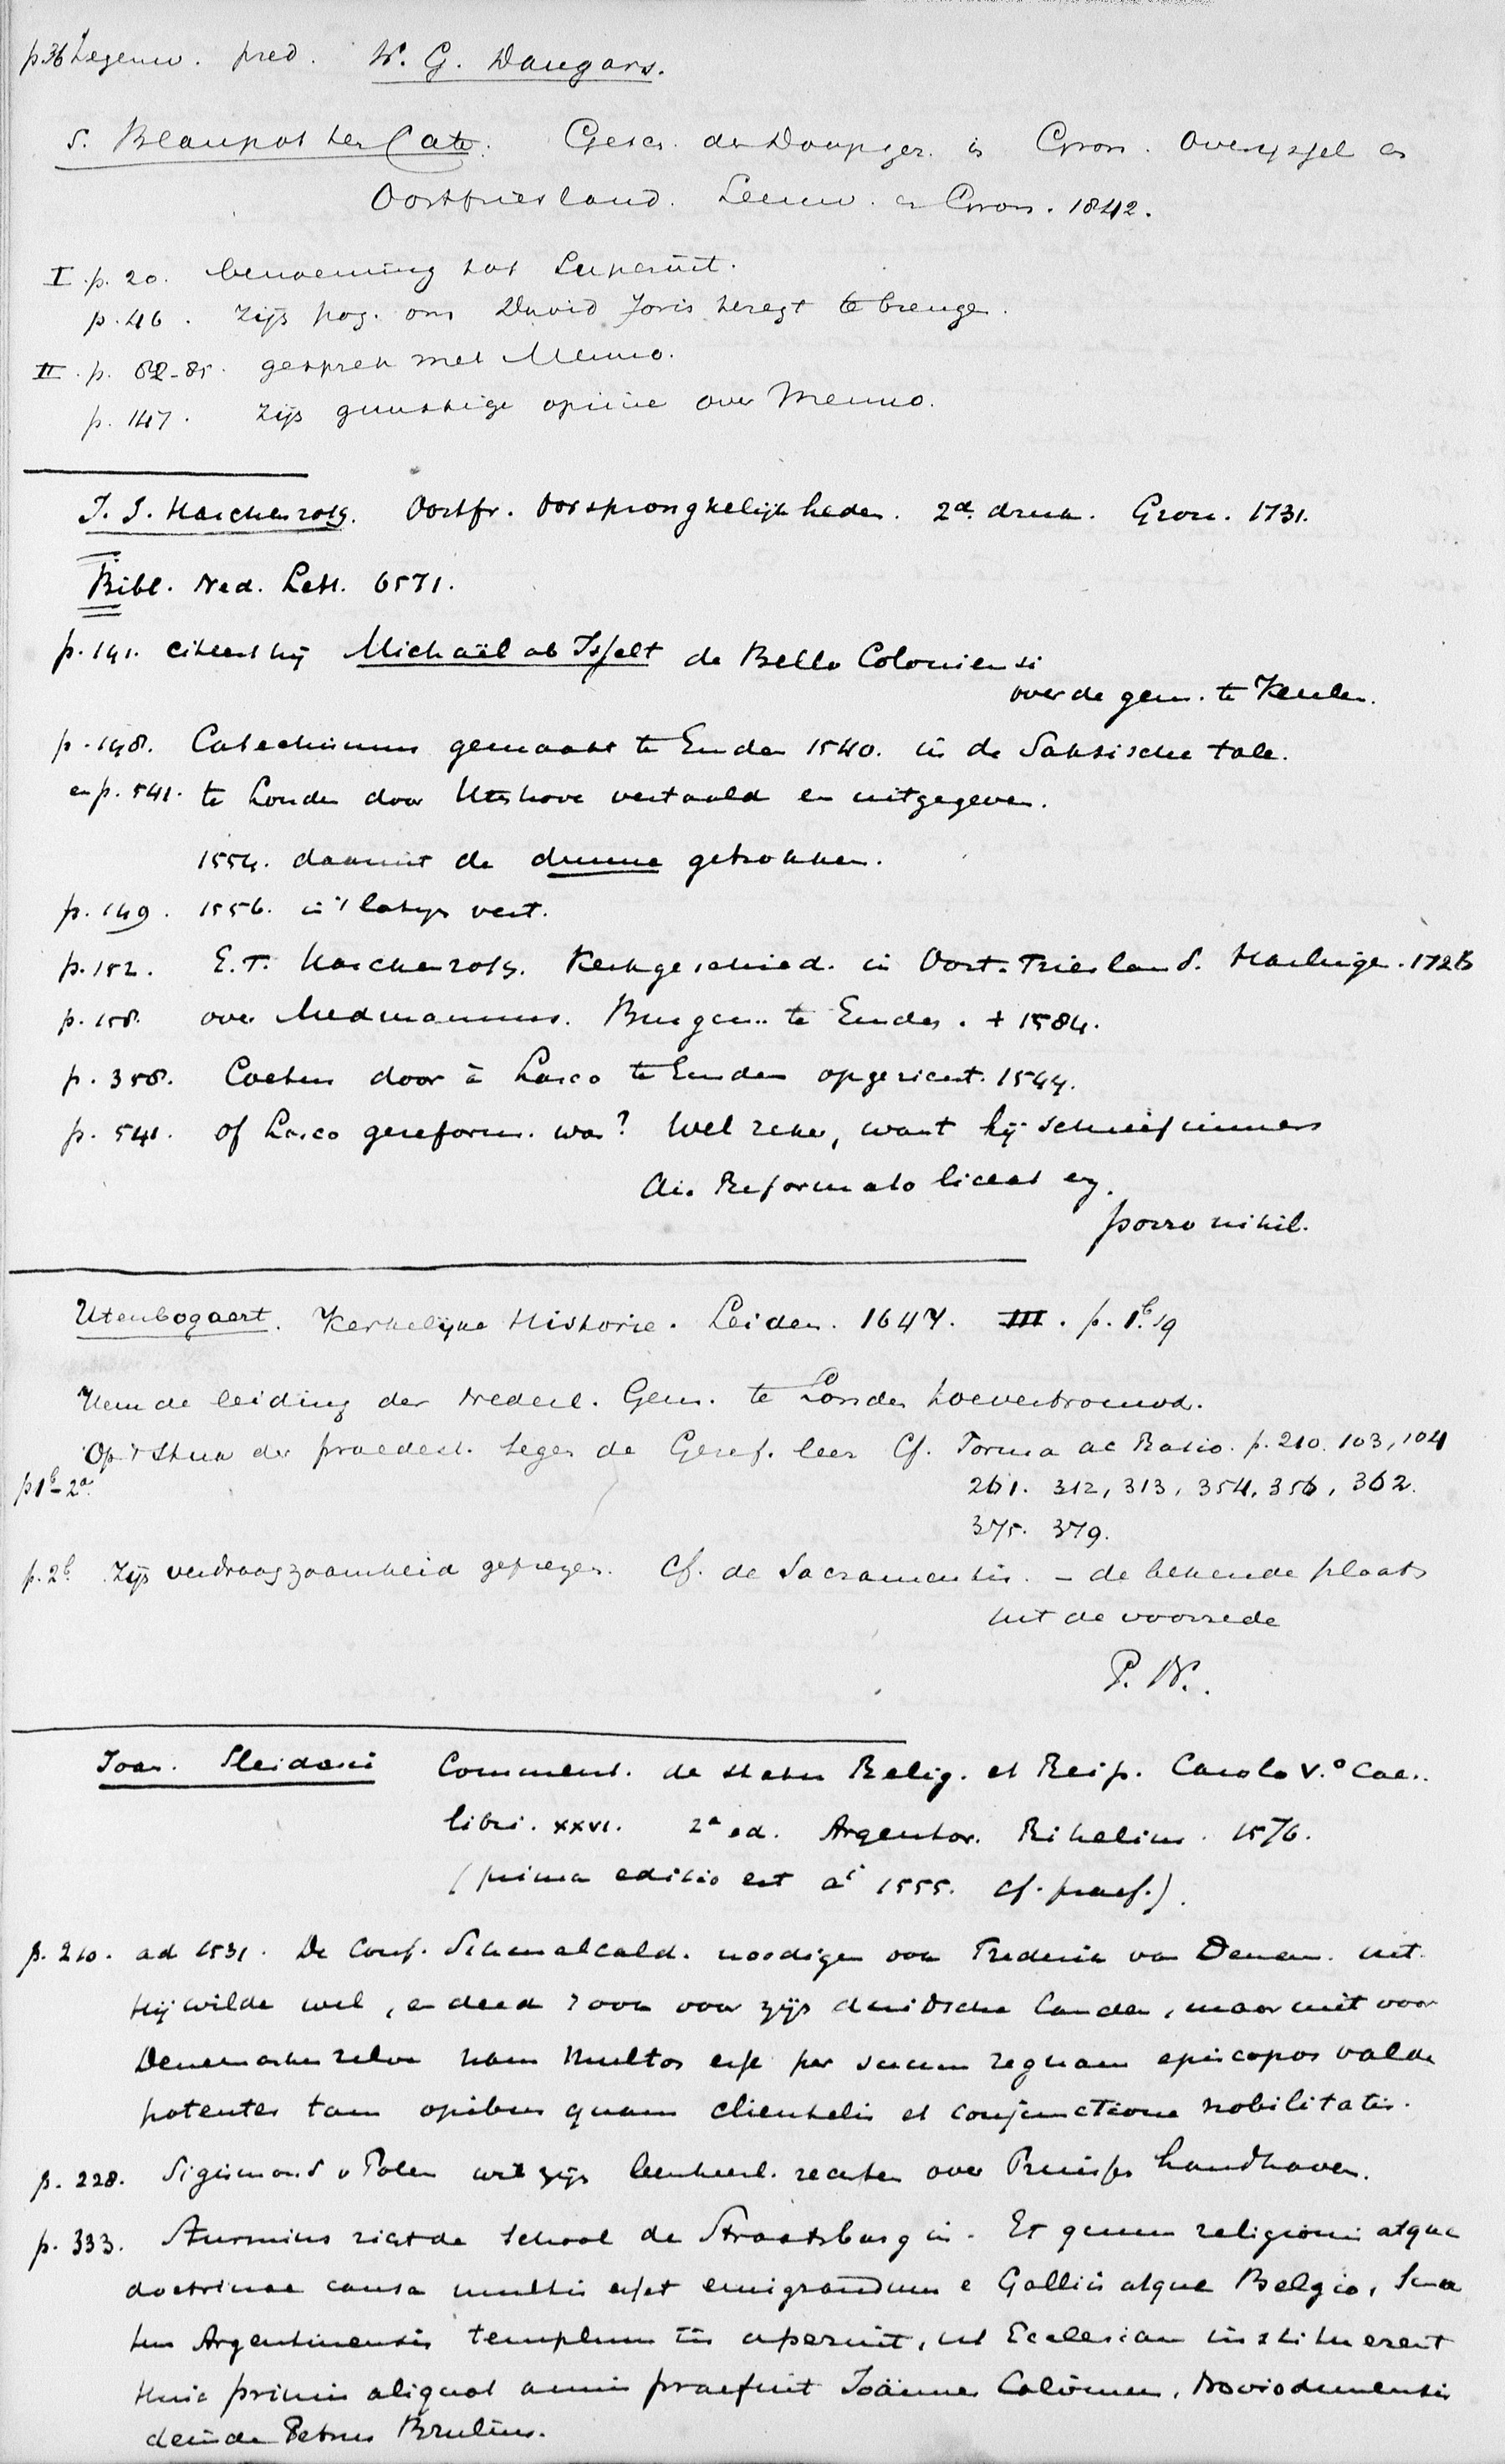 p36 Tegenw. pred. W. G. Daugars.
S. Blaupot ten Cate. Gesch. der Doopsger. in Gron. Overijssel en
Oostfriesland. Leeuw. en Gron. 1842.
I. p. 20. benoeming tot Superint.
p. 46. zijn pog. om David Joris teregt te brengen.
II. p. 82-85. gesprek met Menno.
p. 147. zijn gunstige opinie over Menno.
J. J. Harckenroht. Oostfr. Oorspronkelijkheden. 2e druk. Gron. 1731.
Bibl. Ned. Lett. 6571.
p. 141. citeert hij Michaël ab Isselt de Bello Coloniensi
over de gem. te Keulen.
p. 148. Catechismus gemaakt te Emden 1540. in de Saksische tale.
en p. 541. te Londen door Utenhove vertaald en uitgegeven.
1554. daaruit de getrokken.
p. 149. 1556. in 't latijn vert.
p. 152. E. T. Harckenroht. Kerkgeschied. in Oost-Friesland. Harlingen. 1726
p. 158. over Medmannus. Burgem. te Emden. + 1584.
p. 358. Coetus door à Lasco te Emden opgericht. 1544.
p. 541. of Lasco gereform. was? Wel zeker, want hij schreef immers
Reformato liceat
porro nihil.
Utenbogaert. Kerkelijke Historie. Leiden. 1647. III. p. 1b.
Hem de leiding der Nederl. Gem. te Londen toevertrouwd.
Op 't stuk der praedest. tegen de Geref. leer Cf. Forma ac Ratio. p. 210. 103, 104
p1b-2a.
261. 312, 313, 354, 356, 362.
375. 379.
p. 2b. Zijn verdraagzaamheid geprezen. Cf. de Sacramentis. - de bekende plaats
uit de voorrede
P. N.
Joan. Sleidani Comment. de statu Relig. et Reip. Carolo V.o Cae..
libri. XXVI. 2a ed. Argentor. Rihelius. 1576.
(prima editio est ai 1555. cf. praef.).
p. 210. ad 1531. De Conf. Schmalcald. noodigen ook Frederik van Denem. uit.
Hij wilde wel, en deed zoo ook voor zijn duidsche landen, maar niet voor
Denemarken zelve nam multos esse per suum regnum episcopos valde
potentes tam opibus quam clientelis et conjunctione nobilitatis.
p. 228. Sigismond v Polen wil zijn leenheerl. rechten over Pruisen handhaven.
p. 333. Sturmius richt de school de Straatsburg in. Et quum religionis atque
doctrinae causa multis esset emigrandum e Galliis atque Belgio, Sena
tus Argentinensis templum iis aperuit, ut Ecclesiam instituerent
Huic primis aliquot annis praefuit Joännes Calvinus, Noviodunensis
deinde Petrus Brulius.